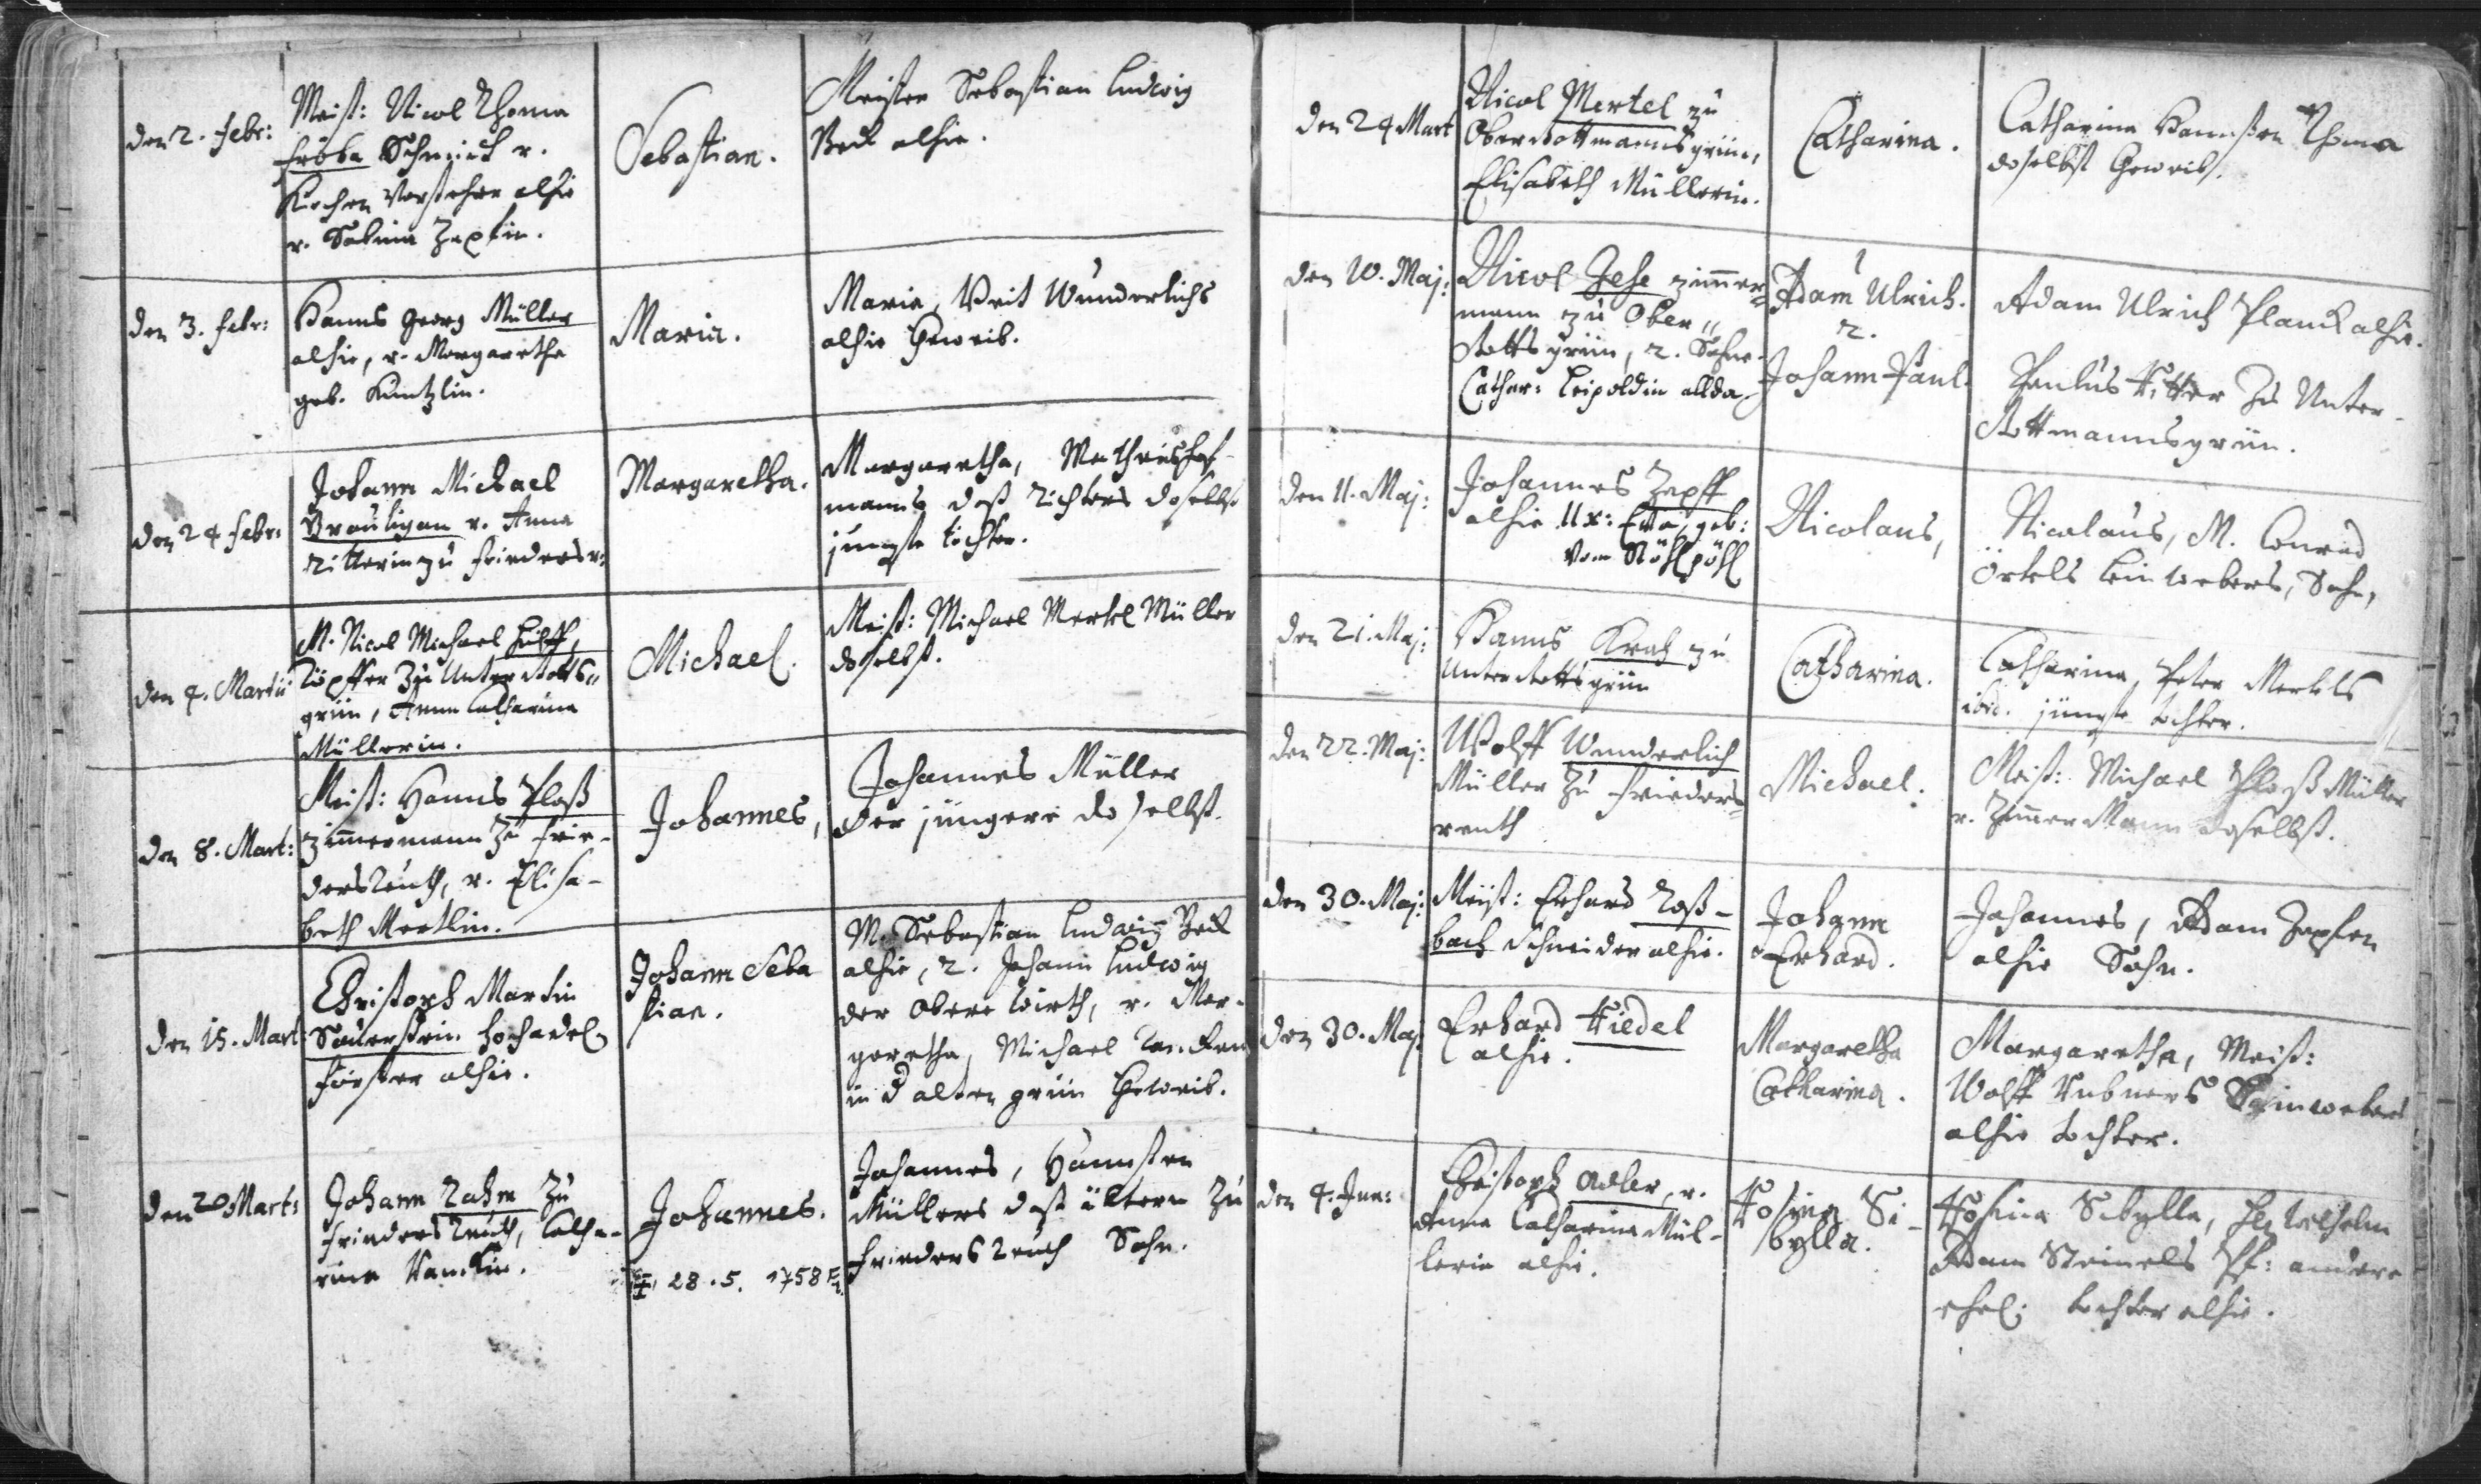 den 2. Febr:
Meist: Nicol Thoma
Fröba Schmidt v.
Kirchen Vorsteher alhie
v. Sabina Zapfin.
Sebastian.
Meister Sebastian Ludwig
Beck alhie.
den 3. Febr:
Hanns Georg Müller
alhie, v. Margaretha
geb. Küntzlin.
Maria.
Maria, Veit Wunderlichs
alhie Eheweib.
den 24 Febr:
Johann Michael
v. Anna
Ritterin zu Friedersr:
Margaretha.
Margaretha, Matheus Hof-
manns deß Richters doselbst
jüngste tochter.
den 4. Martii
M. Nicol Michael
Töpffer zu Unter Kotts„
grün, Anna Catharina
Müllerin.
Michael.
Meist: Michael Mertel Müller
doselbst.
den 8. Mart:
Meist: Hanns Ploß
Zimmermann zu Frie-
dersreuth, v. Elisa-
beth Mertlin.
Johannes,
Johannes Müller
der jüngere doselbst.
den 15. Mart:
Christoph Martin
Sauerstein Hochadel
Förster alhie.
Johann Seba
stian.
M. Sebastian Ludwig Beck
alhie, v. Johann Ludwig
der obere Wirth, v. Mar-
garetha, Michael
in d alten grün Eheweib.
den 20 Mart:
Johann Rahm zu
Friedersreuth, Catha-
rina
Johannes.
28. 5. 1758
Johannes, Hannsen
Müllers deß ältern zu
Friedersreuth Sohn.
den 24 Mart
Nicol Mertel zu
Oberkottmannsgrün,
Elisabeth Müllerin.
Catharina.
Catharina Hannßen Thoma
doselbst Eheweib.
den 10. Maj:
Nicol Jehe Zimmer-
mann zu Ober„
kottsgrün, v.
Cathar: Leipoldin allda
Adam Ulrich.
v.
Johann Paul.
Adam Ulrich Planck alhie.
Paulus Ritter zu Unter-
kottmannsgrün.
den 11. Maj:
Johannes Zapff
alhie Ux: Eva, geb:
vom
Nicolaus,
Nicolaus, M. Conrad
Örtels Leinwebers, Sohn,
den 21. Maj:
Hanns Krah zu
Unterkottsgrün
Catharina.
Catharina, Peter Mertels
ibid. jüngste tochter.
den 22. Maj:
Wolff Wunderlich
Müller zu Frieders-
reuth
Michael.
Meist: Michael Ploß Müller
v. Zimmer Mann doselbst.
den 30. Maj:
Meist: Erhard Roß-
bach Schneider alhie.
Johann
Erhard.
Johannes, Adam Zapfen
alhie Sohn.
den 30. Maj:
Erhard Riedel
alhie.
Margaretha
Catharina.
Margaretha, Meist:
Wolff Hübners Leinwebers
alhie tochter.
den 4. Jun:
Christoph Adler, v.
Anna Catharina Mül-
lerin alhie.
Rosina Si-
bylla.
Rosina Sibylla, H. Wilhelm
Adam Steinels Pf: andere
ehel: tochter alhie.